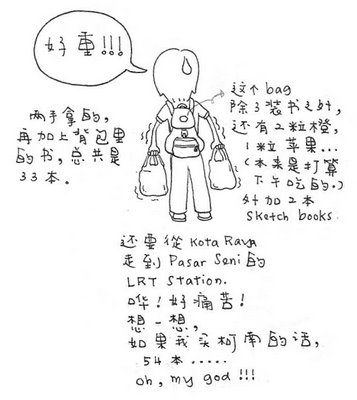 好重!!!
两手拿的,
再加上背包里
的书,总共是
33本.
这个bag
除了装书之外,
还有2粒橙,
1粒苹果...
(本来是打算
下午吃的.)
外加2本
sketch books.
还要從Kota Raya
走到Pasar Seni的
LRT Station.
哗!好痛苦!
想一想,
如果我买柯南的话,
54本.....
oh, my god!!!